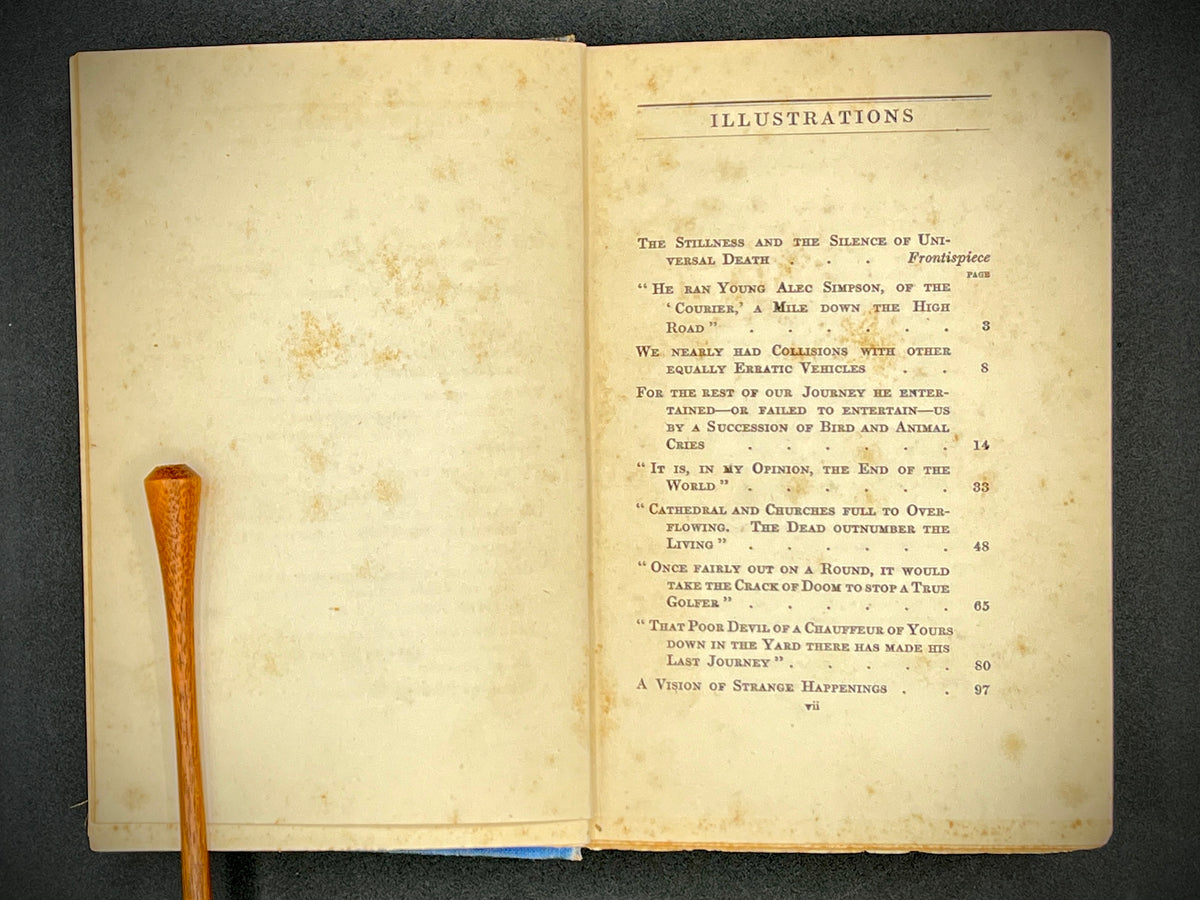 ILLUSTRATIONS
The Stillness and the Silence of Uni-
versal Death . . . Frontispiece
PAGE
“He ran Young Alec Simpson, of the
‘Courier,’ a Mile down the High
Road” . . . . . . 3
We nearly had Collisions with other
equally Erratic Vehicles . . 8
For the rest of our Journey he enter-
tained—or failed to entertain—us
by a Succession of Bird and Animal
Cries . . . . . . 14
“It is, in my Opinion, the End of the
World” . . . . . . 33
“Cathedral and Churches full to Over-
flowing. The Dead outnumber the
Living” . . . . . . 48
“Once fairly out on a Round, it would
take the Crack of Doom to stop a True
Golfer” . . . . . . 65
“That Poor Devil of a Chauffeur of Yours
down in the Yard there has made his
Last Journey” . . . . . 80
A Vision of Strange Happenings . . 97
vii